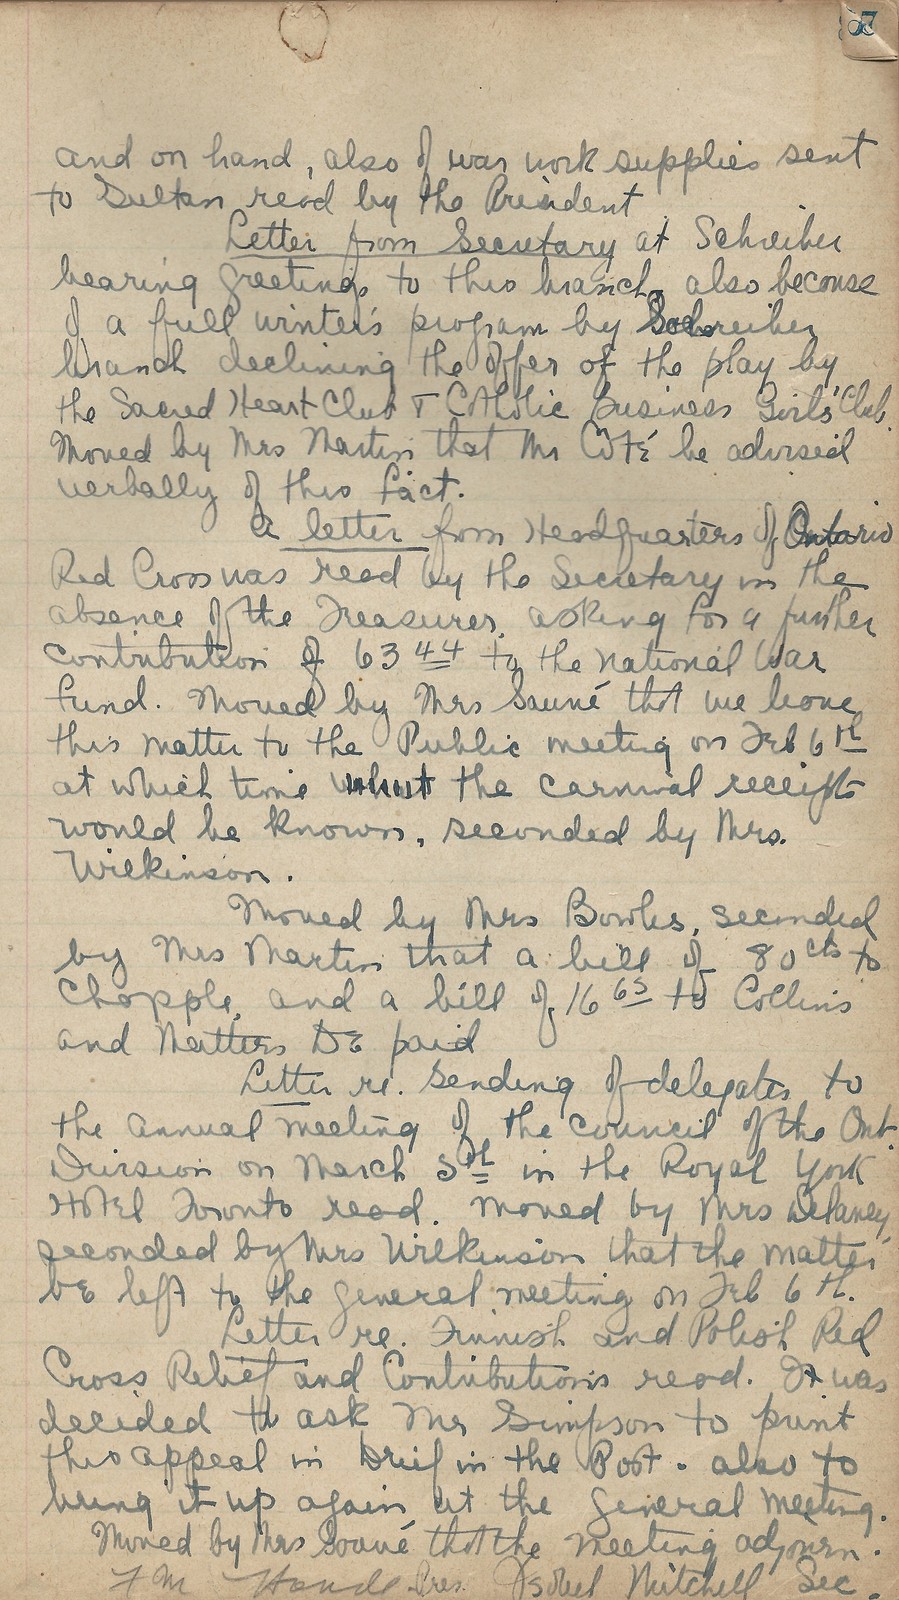 57
and on hand, also of war work supplies sent
to Sultan read by the President
Letter from Secretary at Schreiber
bearing greetings to this branch, also because
of a full winter's program by Schreiber
branch declining the offer of the play by
the Sacred Heart Club & Catholic Business Girls' Club.
Moved by Mrs Martin that Mr Coté be advised
verbally of this fact.
A letter from Headquarters of Ontario
Red Cross was read by the Secretary in the
absence of the Treasurer, asking for a further
contribution of 63 44 to the National War
Fund. Moved by Mrs Sauvé that we leave
this matter to the Public meeting on Feb 6th
at which time the carnival receipts
would be known, seconded by Mrs.
Wilkinson.
Moved by Mrs Bowles, seconded
by Mrs Martin that a bill of 80cts to
Chapple, and a bill of 16 65 to Collins
and be paid
Letter re. sending of delegates to
the annual meeting of the council of the Ont.
Division on March 5th in the Royal York
Hotel Toronto read. Moved by Mrs Delaney
seconded by Mrs Wilkinson that the matter
be left to the general meeting on Feb 6th.
Letter re. Finnish and Polish Red
Cross Relief and Contributions read. It was
decided to ask Mr Simpson to print
this appeal in brief in the Post. also to
bring it up again at the general meeting.
Moved by Mrs Sauvé that the meeting adjourn.
F M Pres. Isobel Mitchell Sec.